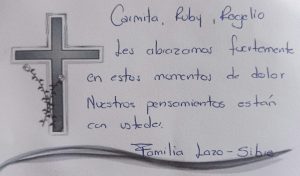 Carmita, Ruby, Rogelio
Les abrazamos fuertemente
en estos momentos de dolor
Nuestros pensamientos están
con ustedes.
Familia Lazo-